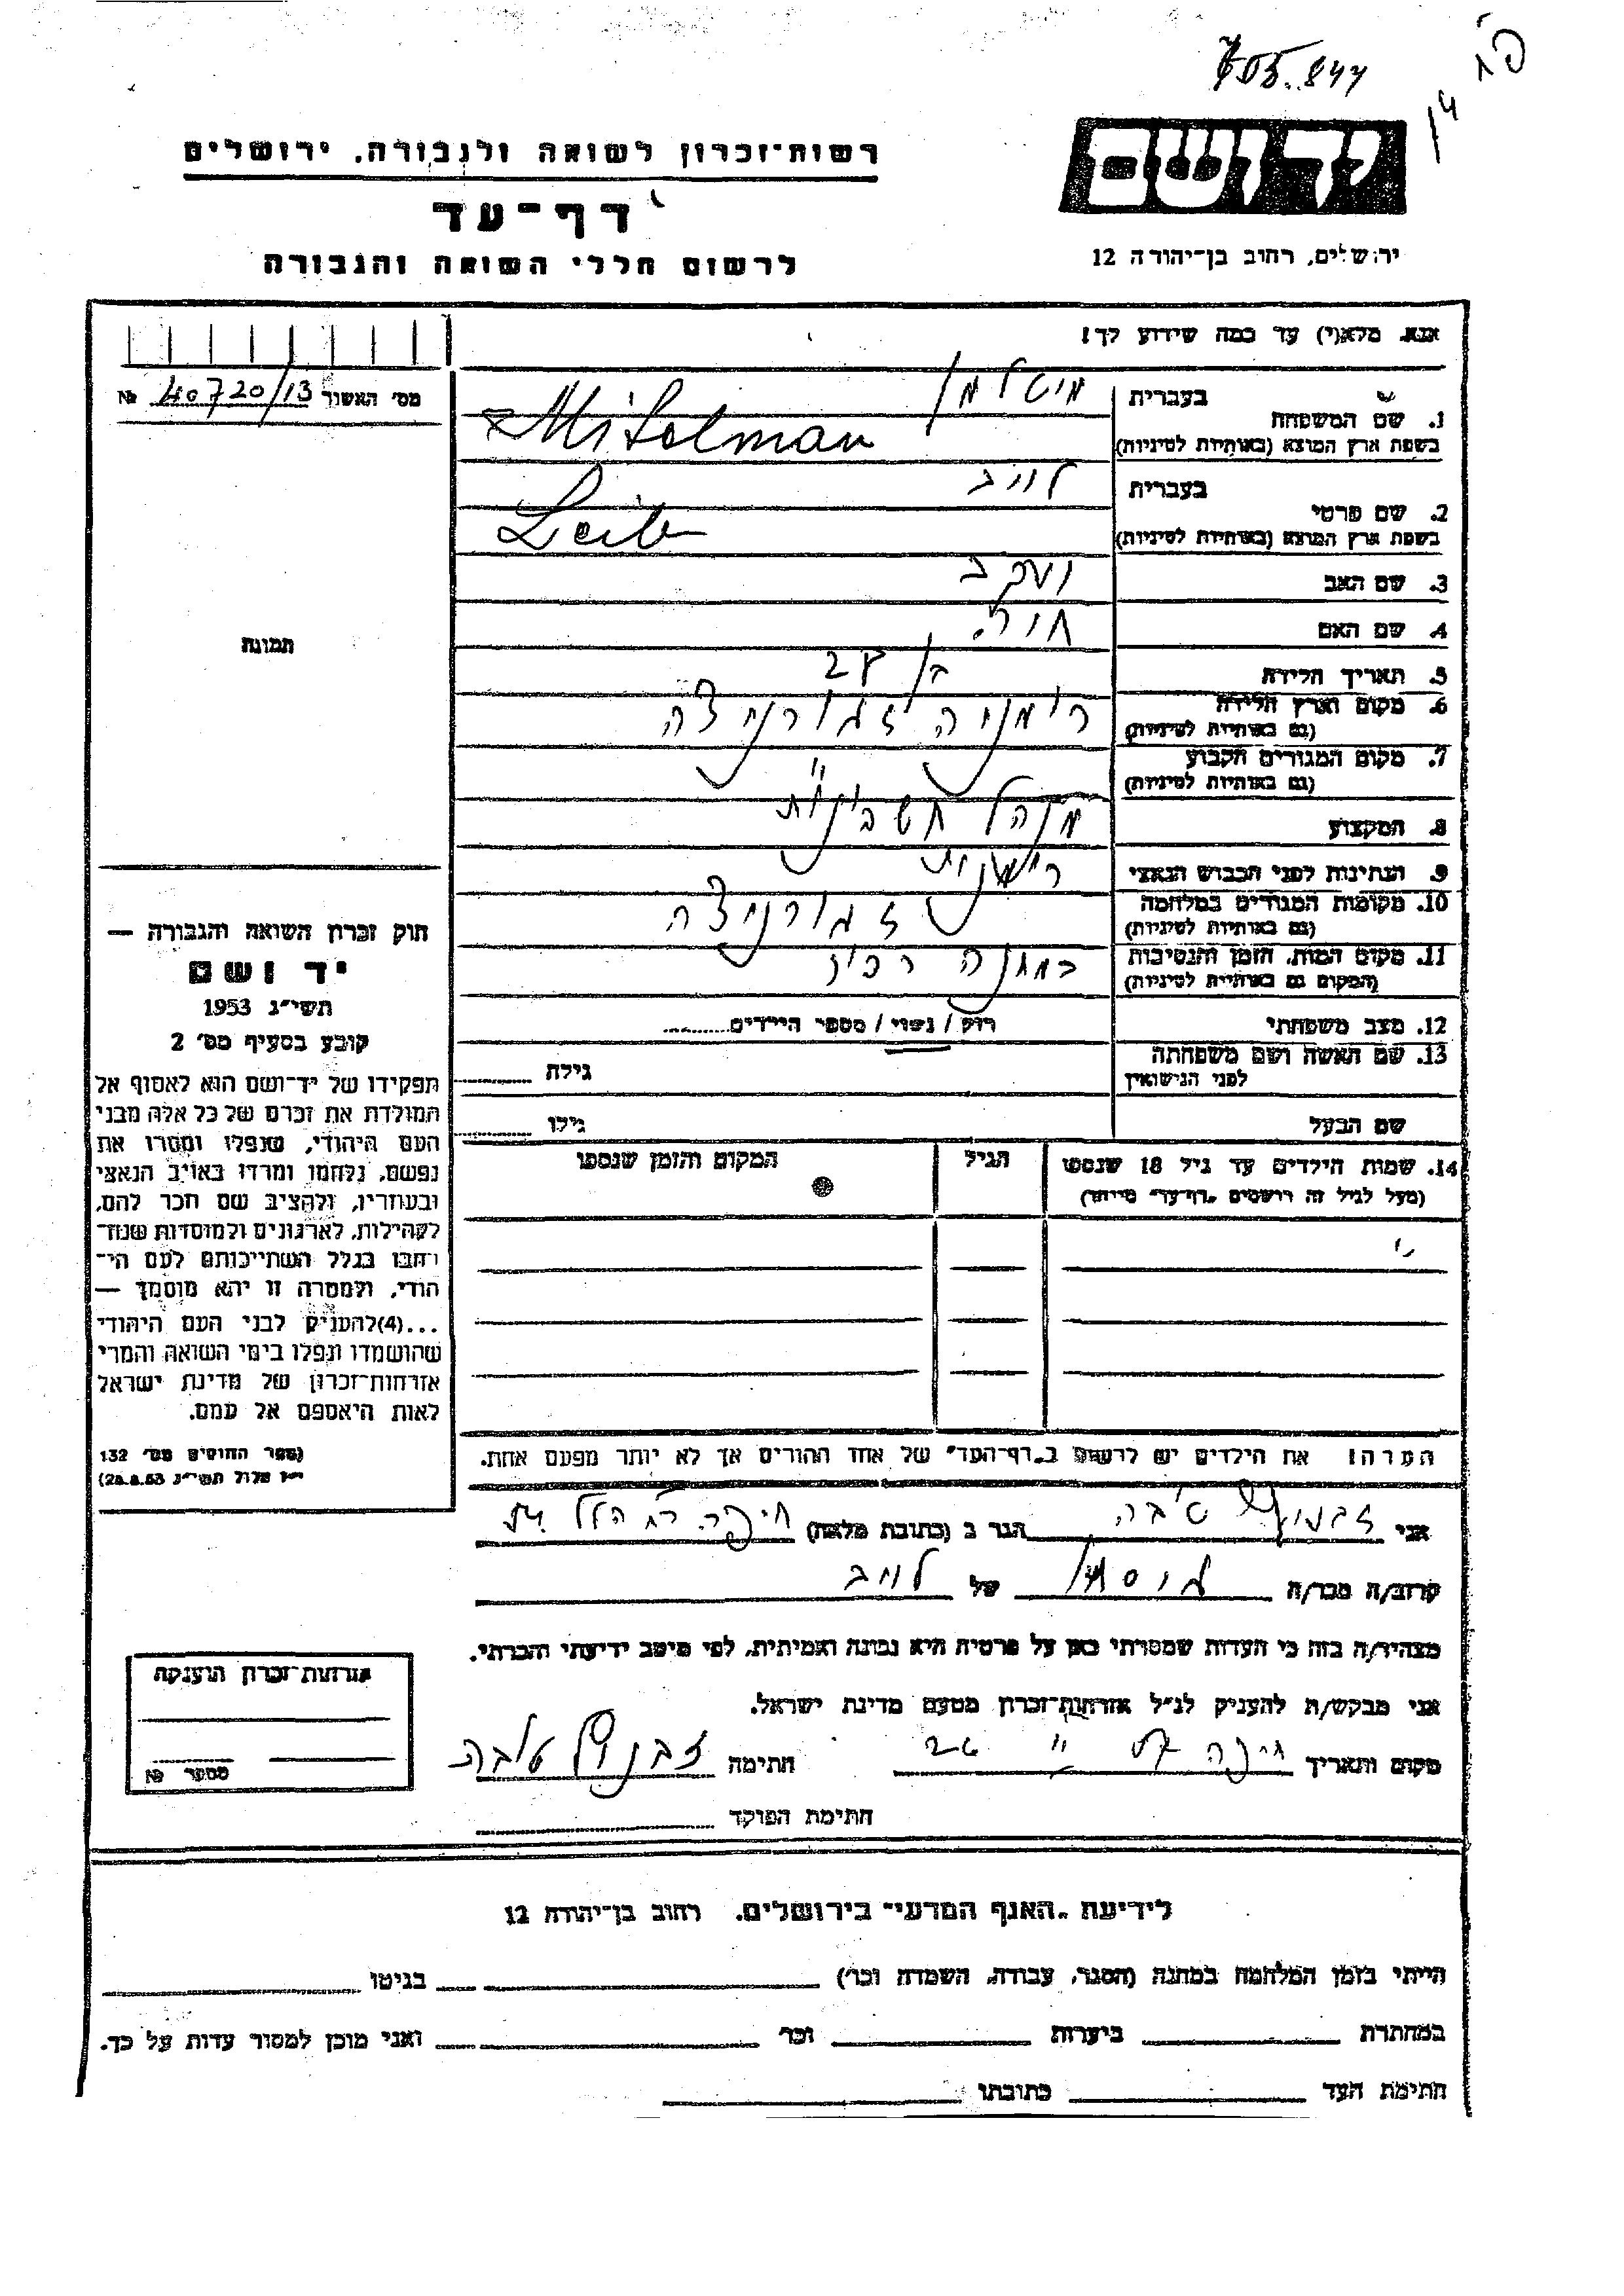 705.844
רשות־זכרון לשואה ולגבורה, ירושלים
יד ושם
דף־עד
ירושלים, רחוב בן־יהודה 12
לרשום חללי השואה והגבורה
אנא, מלא(י) עד כמה שידוע לך!
מס׳ האשור 40720/13 №
בעברית מיטלמן
1. שם המשפחה
בשפת ארץ המוצא (באותיות לטיניות) Mitelman
בעברית לייב
2. שם פרטי
בשפת ארץ המוצא (באותיות לטיניות) Leib
3. שם האב יעקב
4. שם האם
תמונה
5. תאריך הלידה
6. מקום וארץ הלידה רומניה זגורניצה
(גם באותיות לטיניות)
7. מקום המגורים הקבוע
(גם באותיות לטיניות)
8. המקצוע מנהל חשבונות
9. הנתינות לפני הכבוש הנאצי
10. מקומות המגורים במלחמה זגורניצה
(גם באותיות לטיניות)
11. מקום המות, הזמן והנסיבות
(המקום גם באותיות לטיניות)
12. מצב משפחתי רווק / נשוי / מספר הילדים
13. שם האשה ושם משפחתה
לפני הנישואין גילה
שם הבעל גילו
14. שמות הילדים עד גיל 18 שנספו הגיל המקום והזמן שנספו
(מעל לגיל זה רושמים "דף־עד" מיוחד)
הערה: את הילדים יש לרשום ב"דף־העד" של אחד ההורים אך לא יותר מפעם אחת.
חוק זכרון השואה והגבורה —
יד ושם
תשי״ג 1953
קובע בסעיף מס׳ 2
תפקידו של יד־ושם הוא לאסוף אל
המולדת את זכרם של כל אלה מבני
העם היהודי, שנפלו ומסרו את
נפשם, נלחמו ומרדו באויב הנאצי
ובעוזריו, ולהציב שם וזכר להם,
לקהילות, לארגונים ולמוסדות שנח־
רבו בגלל השתייכותם לעם הי־
הודי, ולמטרה זו יהא מוסמך —
...(4)להעניק לבני העם היהודי
שהושמדו ונפלו בימי השואה והמרי
אזרחות־זכרון של מדינת ישראל
לאות היאספם אל עמם.
(ספר החוקים מס׳ 132
י״ז אלול תשי״ג 28.8.53)
אני טובה הגר ב (כתובת מלאה) חיפה רח הלל
קרוב/ה מכר/ה של לייב
מצהיר/ה בזה כי העדות שמסרתי כאן על פרטיה היא נכונה ואמיתית, לפי מיטב ידיעתי והכרתי.
אני מבקש/ת להעניק לנ״ל אזרחות־זכרון מטעם מדינת ישראל.
מקום ותאריך חיפה חתימה טובה
חתימת הפוקד
אזרחות־זכרון הוענקה
מספר №
לידיעת "האגף המדעי" בירושלים, רחוב בן־יהודה 12
הייתי בזמן המלחמה במחנה (הסגר, עבודה, השמדה וכו׳) בגיטו
במחתרת ביערות וכו׳ ואני מוכן למסור עדות על כך.
חתימת העד כתובתו